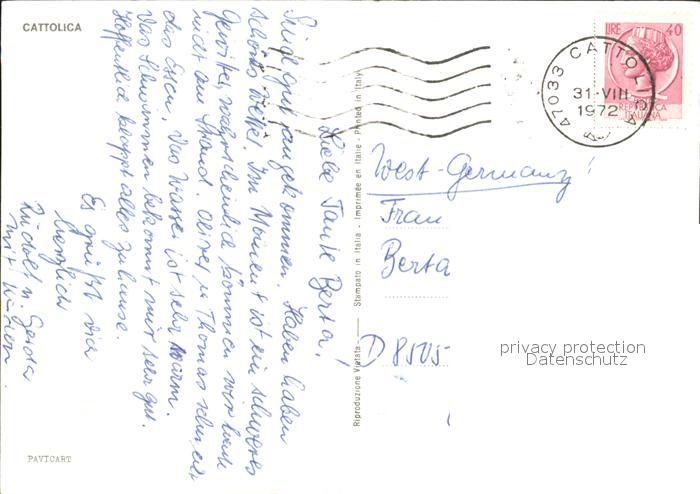 CATTOLICA
Liebe Tante Berta!
Sind gut angekommen. Haben haben
schönes Wetter. Im Moment ist ein schweres
Gewitter, wahrscheinlich können wir heute
nicht an Strand. Oliver u Thomas schmeckt
das Essen. Das Wasser ist sehr warm.
Das Schwimmen bekommt mir sehr gut.
Hoffentlich klappt alles zuhause.
Es grüßt dich
herzlich
Rudolf u. Gerda
mit
PAVICART
Riproduzione Vietata - Stampato in Italia - Imprimée en Italie - Printed in Italy
LIRE 40
REPUBBLICA
ITALIANA
47033 CATTOLICA
31-VIII
1972
West-Germany!
Frau
Berta
D 8505
privacy protection
Datenschutz